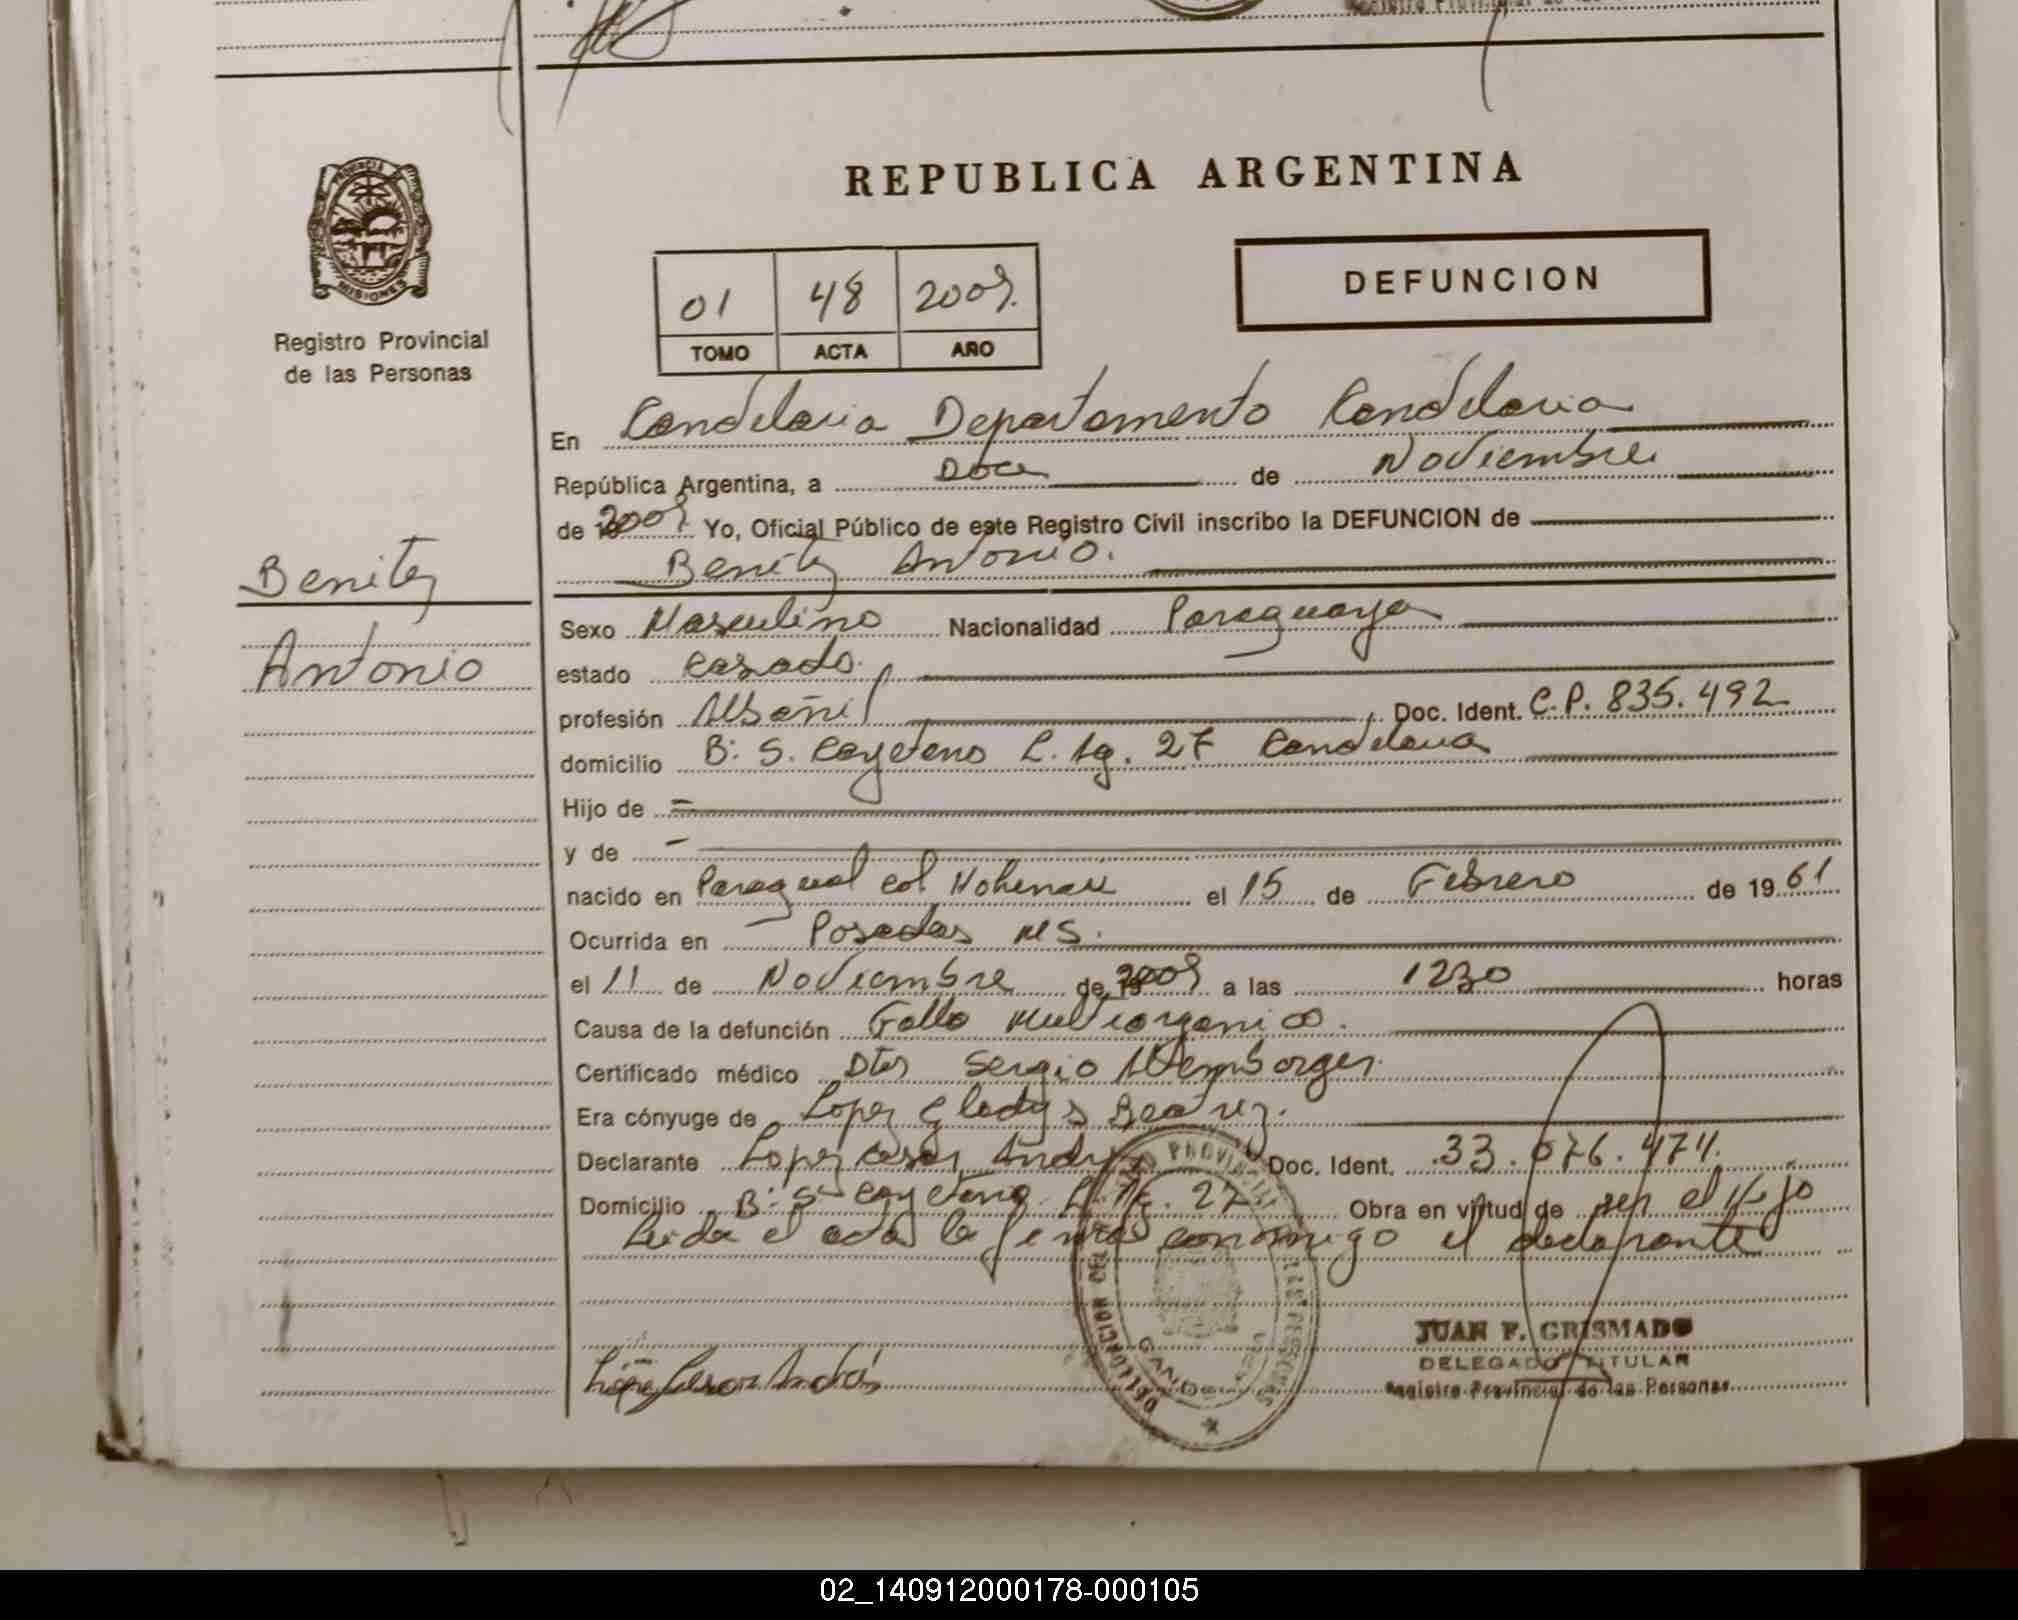 Registro Provincial de las
PROVINCIA DE
MISIONES
Registro Provincial
de las Personas
Benitez
Antonio
REPUBLICA ARGENTINA
01 48 2009.
TOMO ACTA AÑO
DEFUNCION
En Candelaria Departamento Candelaria
República Argentina, a Doce de Noviembre
de 2009 Yo, Oficial Público de este Registro Civil inscribo la DEFUNCION de
Benitez Antonio.
Sexo Masculino Nacionalidad Paraguaya
estado Casado.
profesión Albañil Doc. Ident. C.P. 835.492
domicilio B: S. Cayetano L. Ag. 27 Candelaria
Hijo de =
y de -
nacido en Paraguai col Hohenau el 15 de Febrero de 1961
Ocurrida en Posadas MS.
el 11 de Noviembre de 2009 a las 1230 horas
Causa de la defunción Fallo Multiorganico.
Certificado médico Dtor Sergio
Era cónyuge de Lopez Gladys Beatriz.
Declarante Lopez Cesar Andres Doc. Ident. 33.076.474.
Domicilio B: S Cayetano L. Ag. 27 Obra en virtud de ser el Hijo
Leida el acta la firma conmigo el declarante
López Cesar Andrés
DELEGACION DEL REGISTRO PROVINCIAL DE LAS PERSONAS
JUAN F. GRISMADO
DELEGADO TITULAR
Registro Provincial de las Personas
02_140912000178-000105